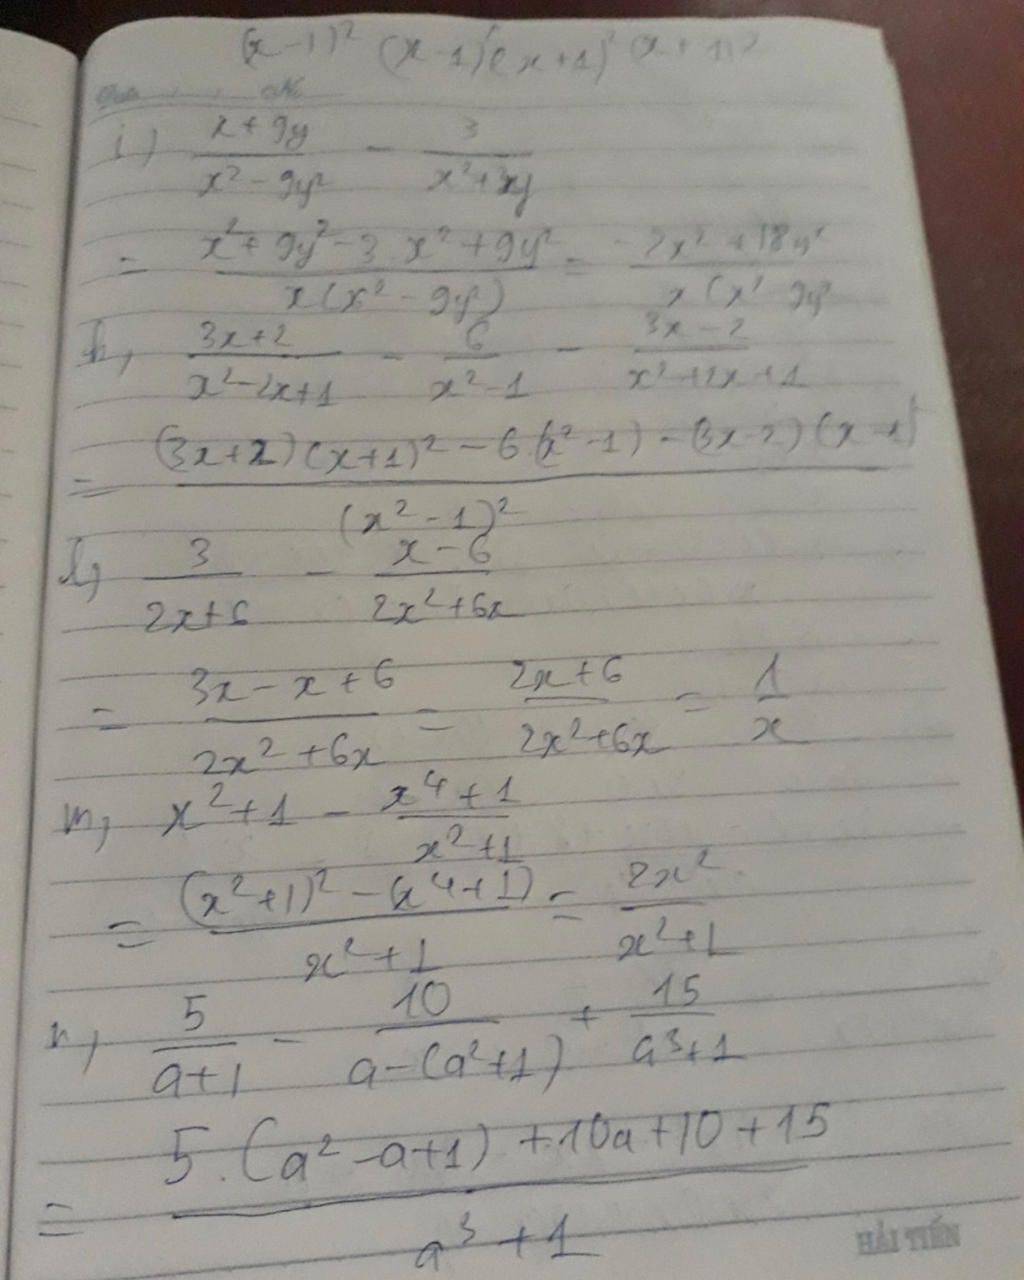 (x-1)² (x-1)²(x+1)² (x+1)²
No
i) x+9y / x²-9y² - 3 / x²+3xy
= x²+9y²-3.x²+9y² / x(x²-9y²) = -2x²+18y² / x(x²-9y²
k, 3x+2 / x²-2x+1 - 6 / x²-1 - 3x-2 / x²+2x+1
= (3x+2)(x+1)²-6(x²-1)-(3x-2)(x-1) / (x²-1)²
l, 3 / 2x+6 - x-6 / 2x²+6x
= 3x-x+6 / 2x²+6x = 2x+6 / 2x²+6x = 1 / x
m, x²+1 - x⁴+1 / x²+1
= (x²+1)²-(x⁴+1) / x²+1 = 2x² / x²+1
n, 5 / a+1 - 10 / a-(a²+1) + 15 / a³+1
= 5.(a²-a+1)+10a+10+15 / a³+1
HẢI TIẾN